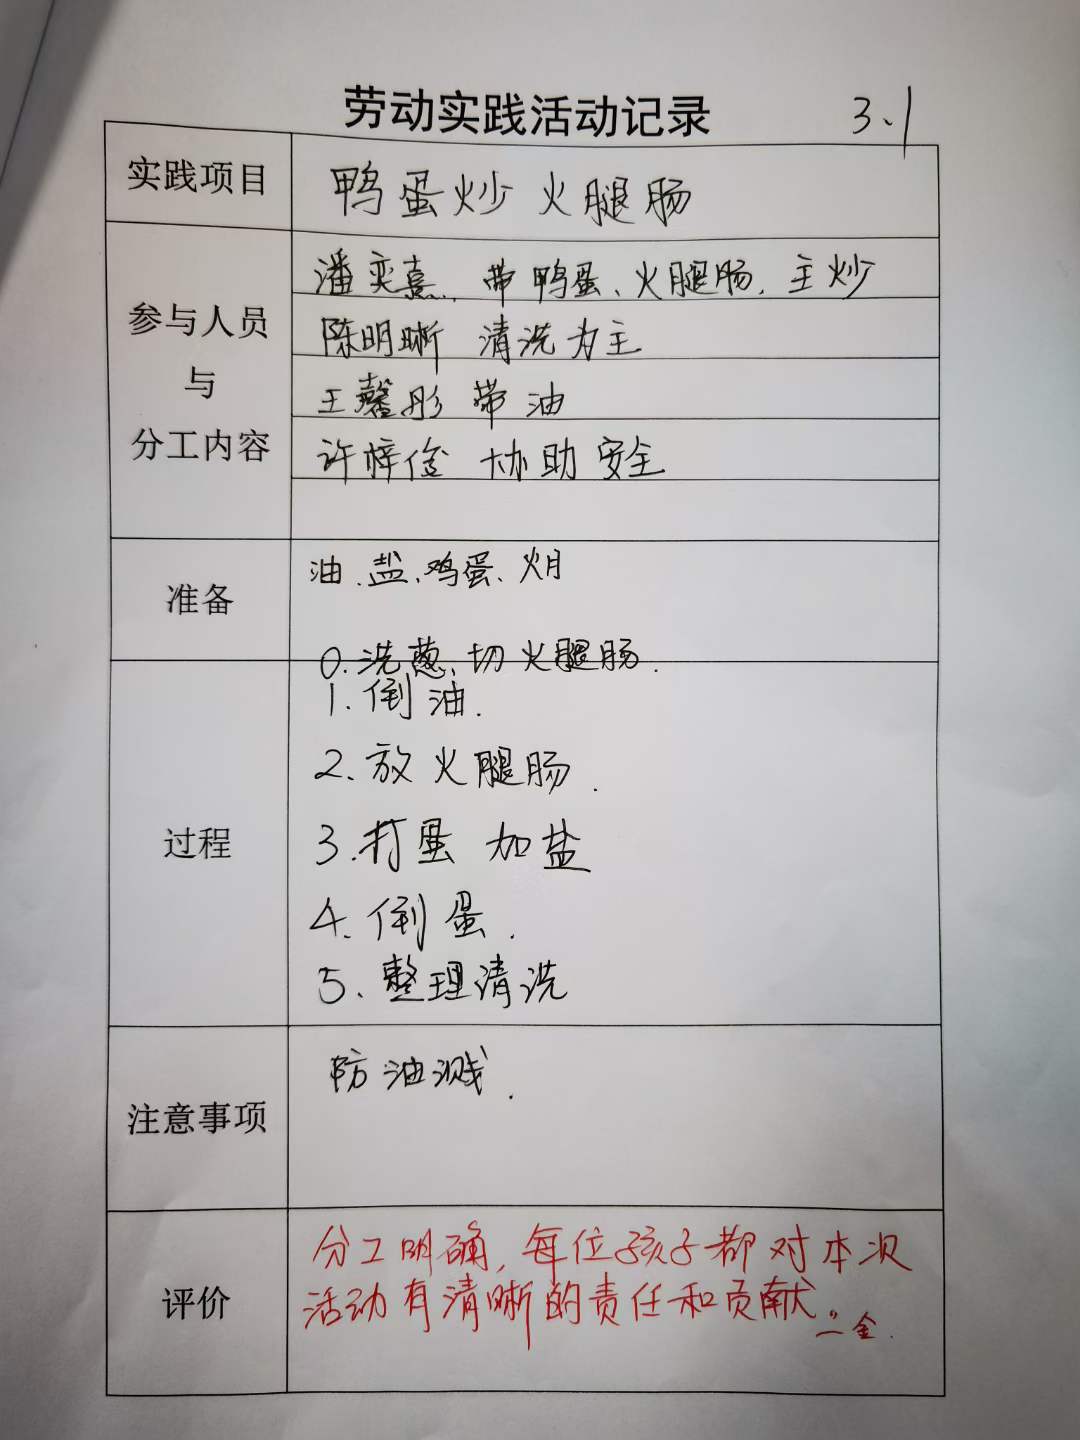 劳动实践活动记录 3.1
实践项目 鸭蛋炒火腿肠
参与人员
与
分工内容
潘奕熹、带鸭蛋、火腿肠、主炒
陈明晰 清洗为主
王馨彤 带油
许梓俊 协助安全
准备
油、盐、鸡蛋、火
0.洗葱、切火腿肠.
过程
1.倒油.
2.放火腿肠.
3.打蛋 加盐
4.倒蛋.
5.整理清洗
注意事项
防油溅.
评价
分工明确,每位孩子都对本次
活动有清晰的责任和贡献。
金.